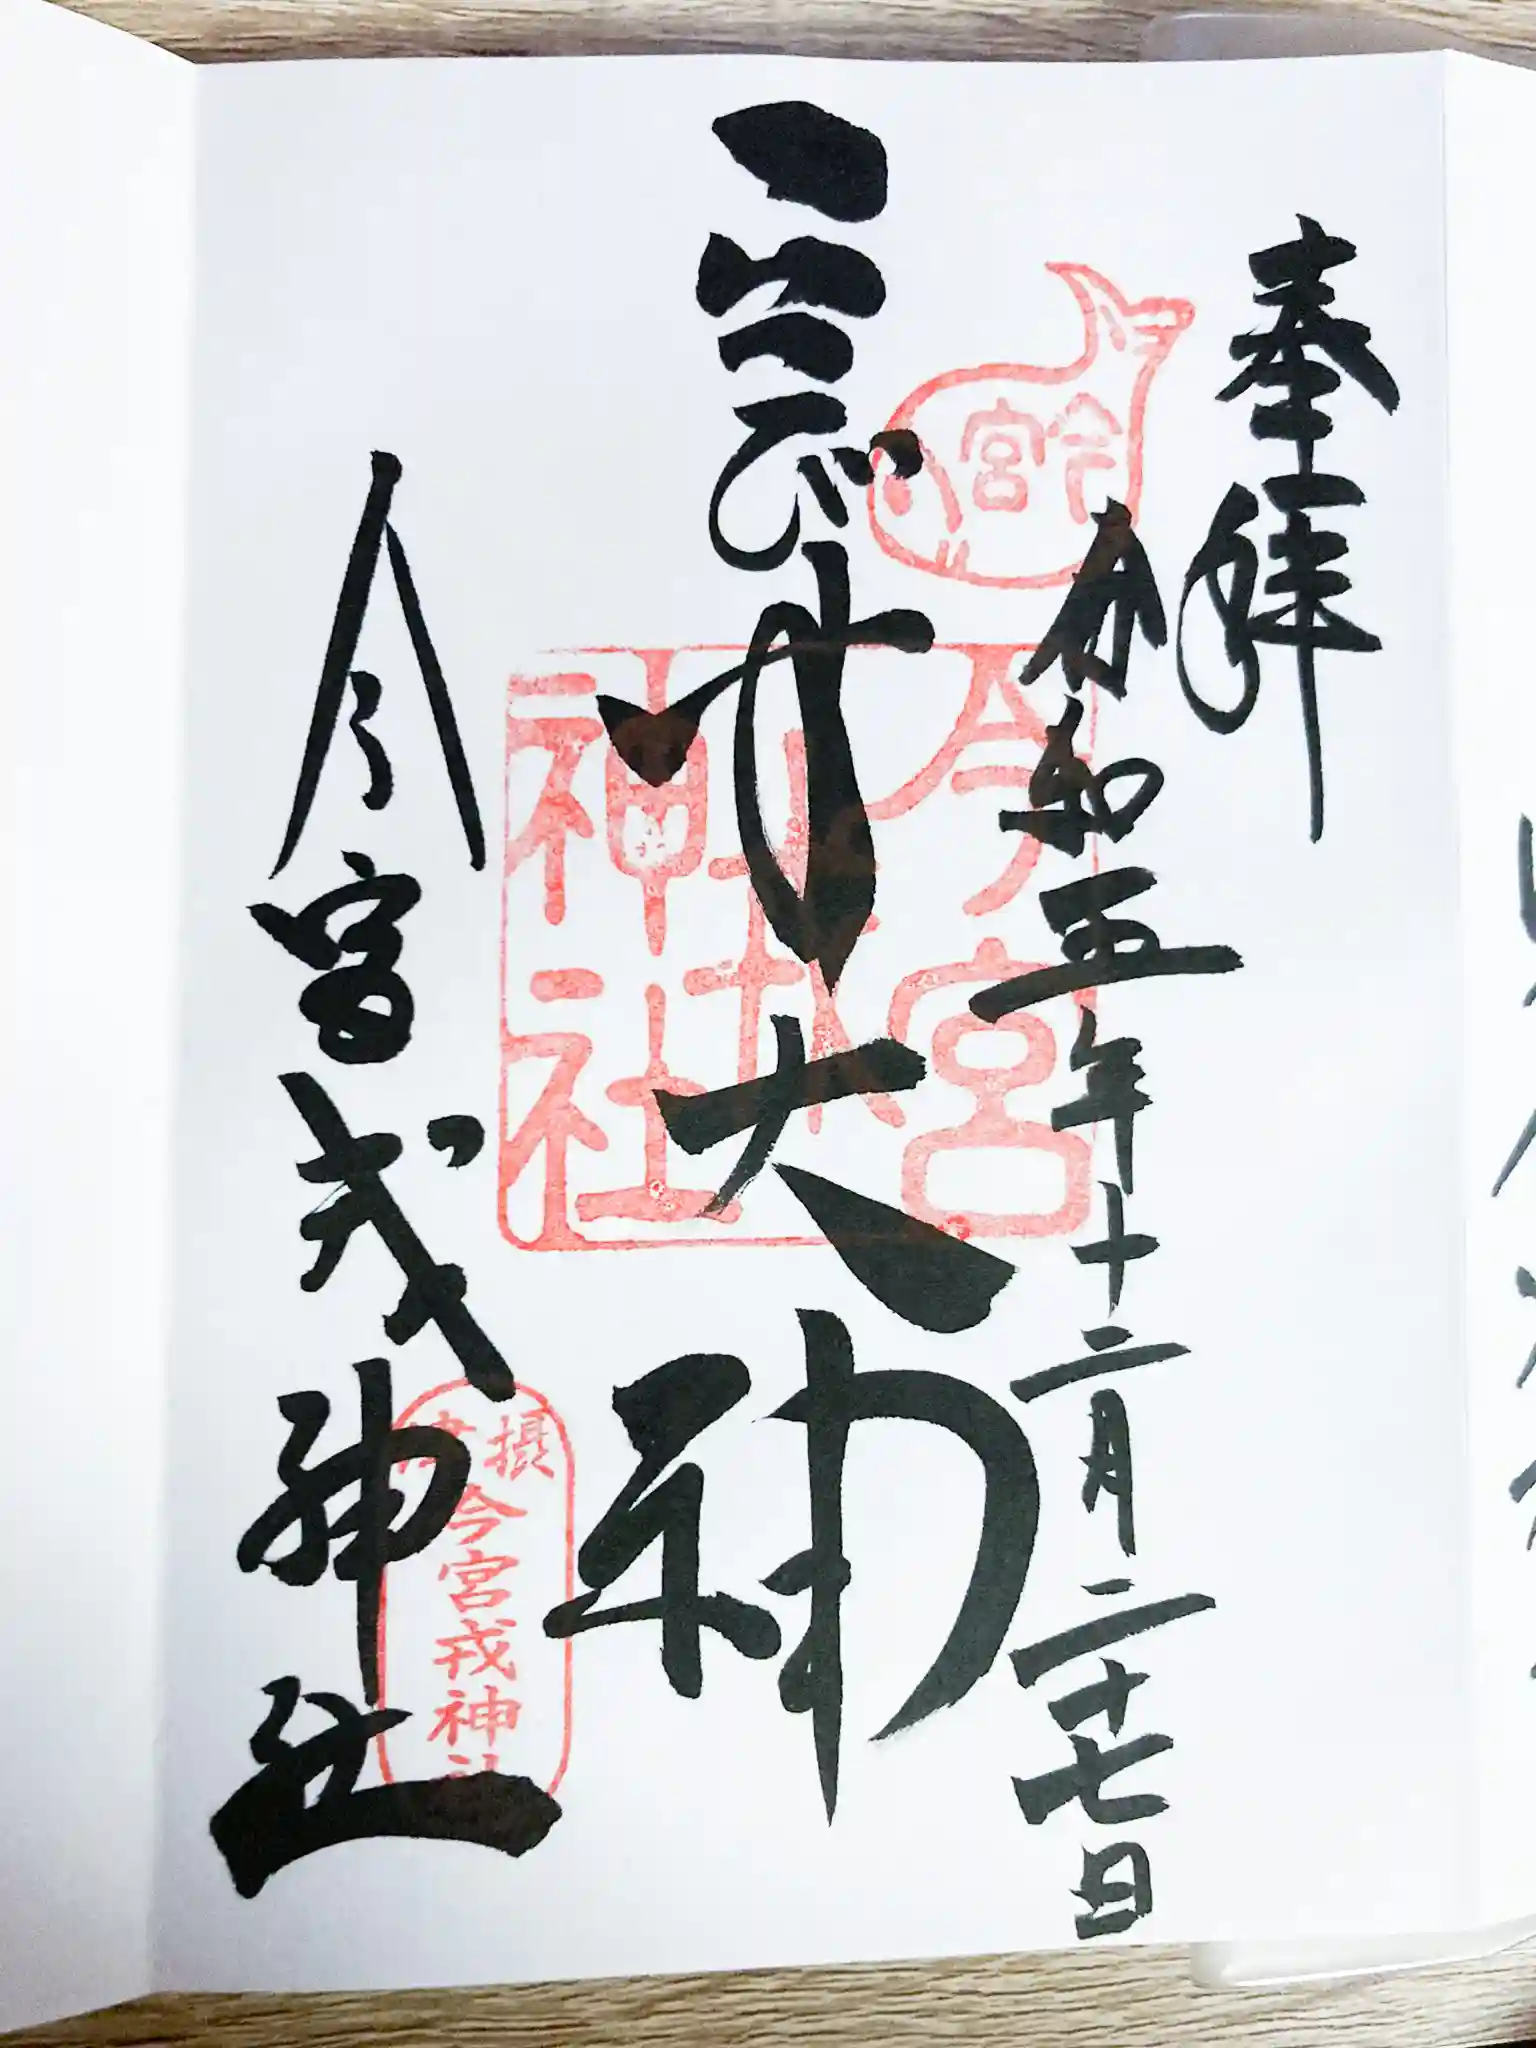 奉拝
令和五年十二月二十七日
今宮
ゑびす大神
今宮戎神社
今宮戎神社
摂津
今宮戎神社